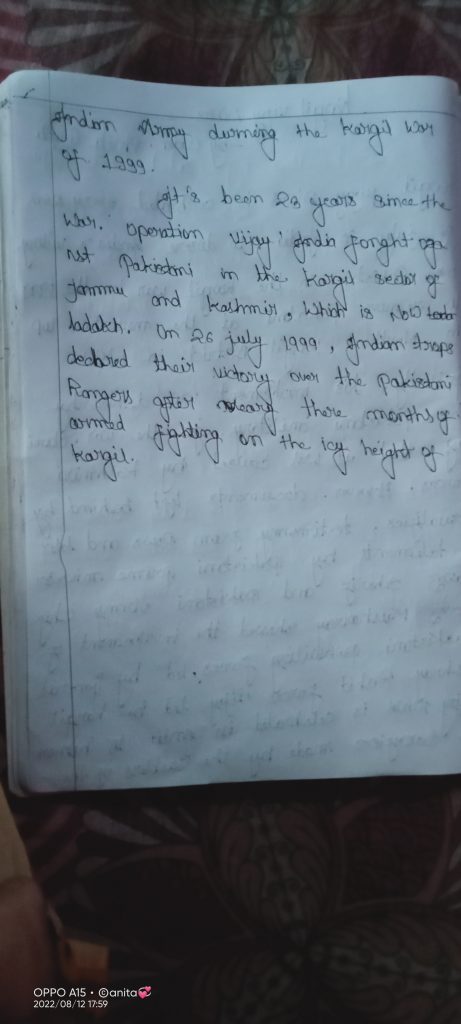 Indian Army durning the Kargil War
of 1999.
It's been 23 years since the
War. operation vijay' India fonght aga
nst Pakistani in the Kargil sector of
Jammu and Kashmir, Which is Now
ladakh. On 26 July 1999, Indian troops
declared their victory over the pakistani
Rangers after neary there months of
armed fighting on the icy height of
Kargil.
OPPO A15 • ©anita💞
2022/08/12 17:59